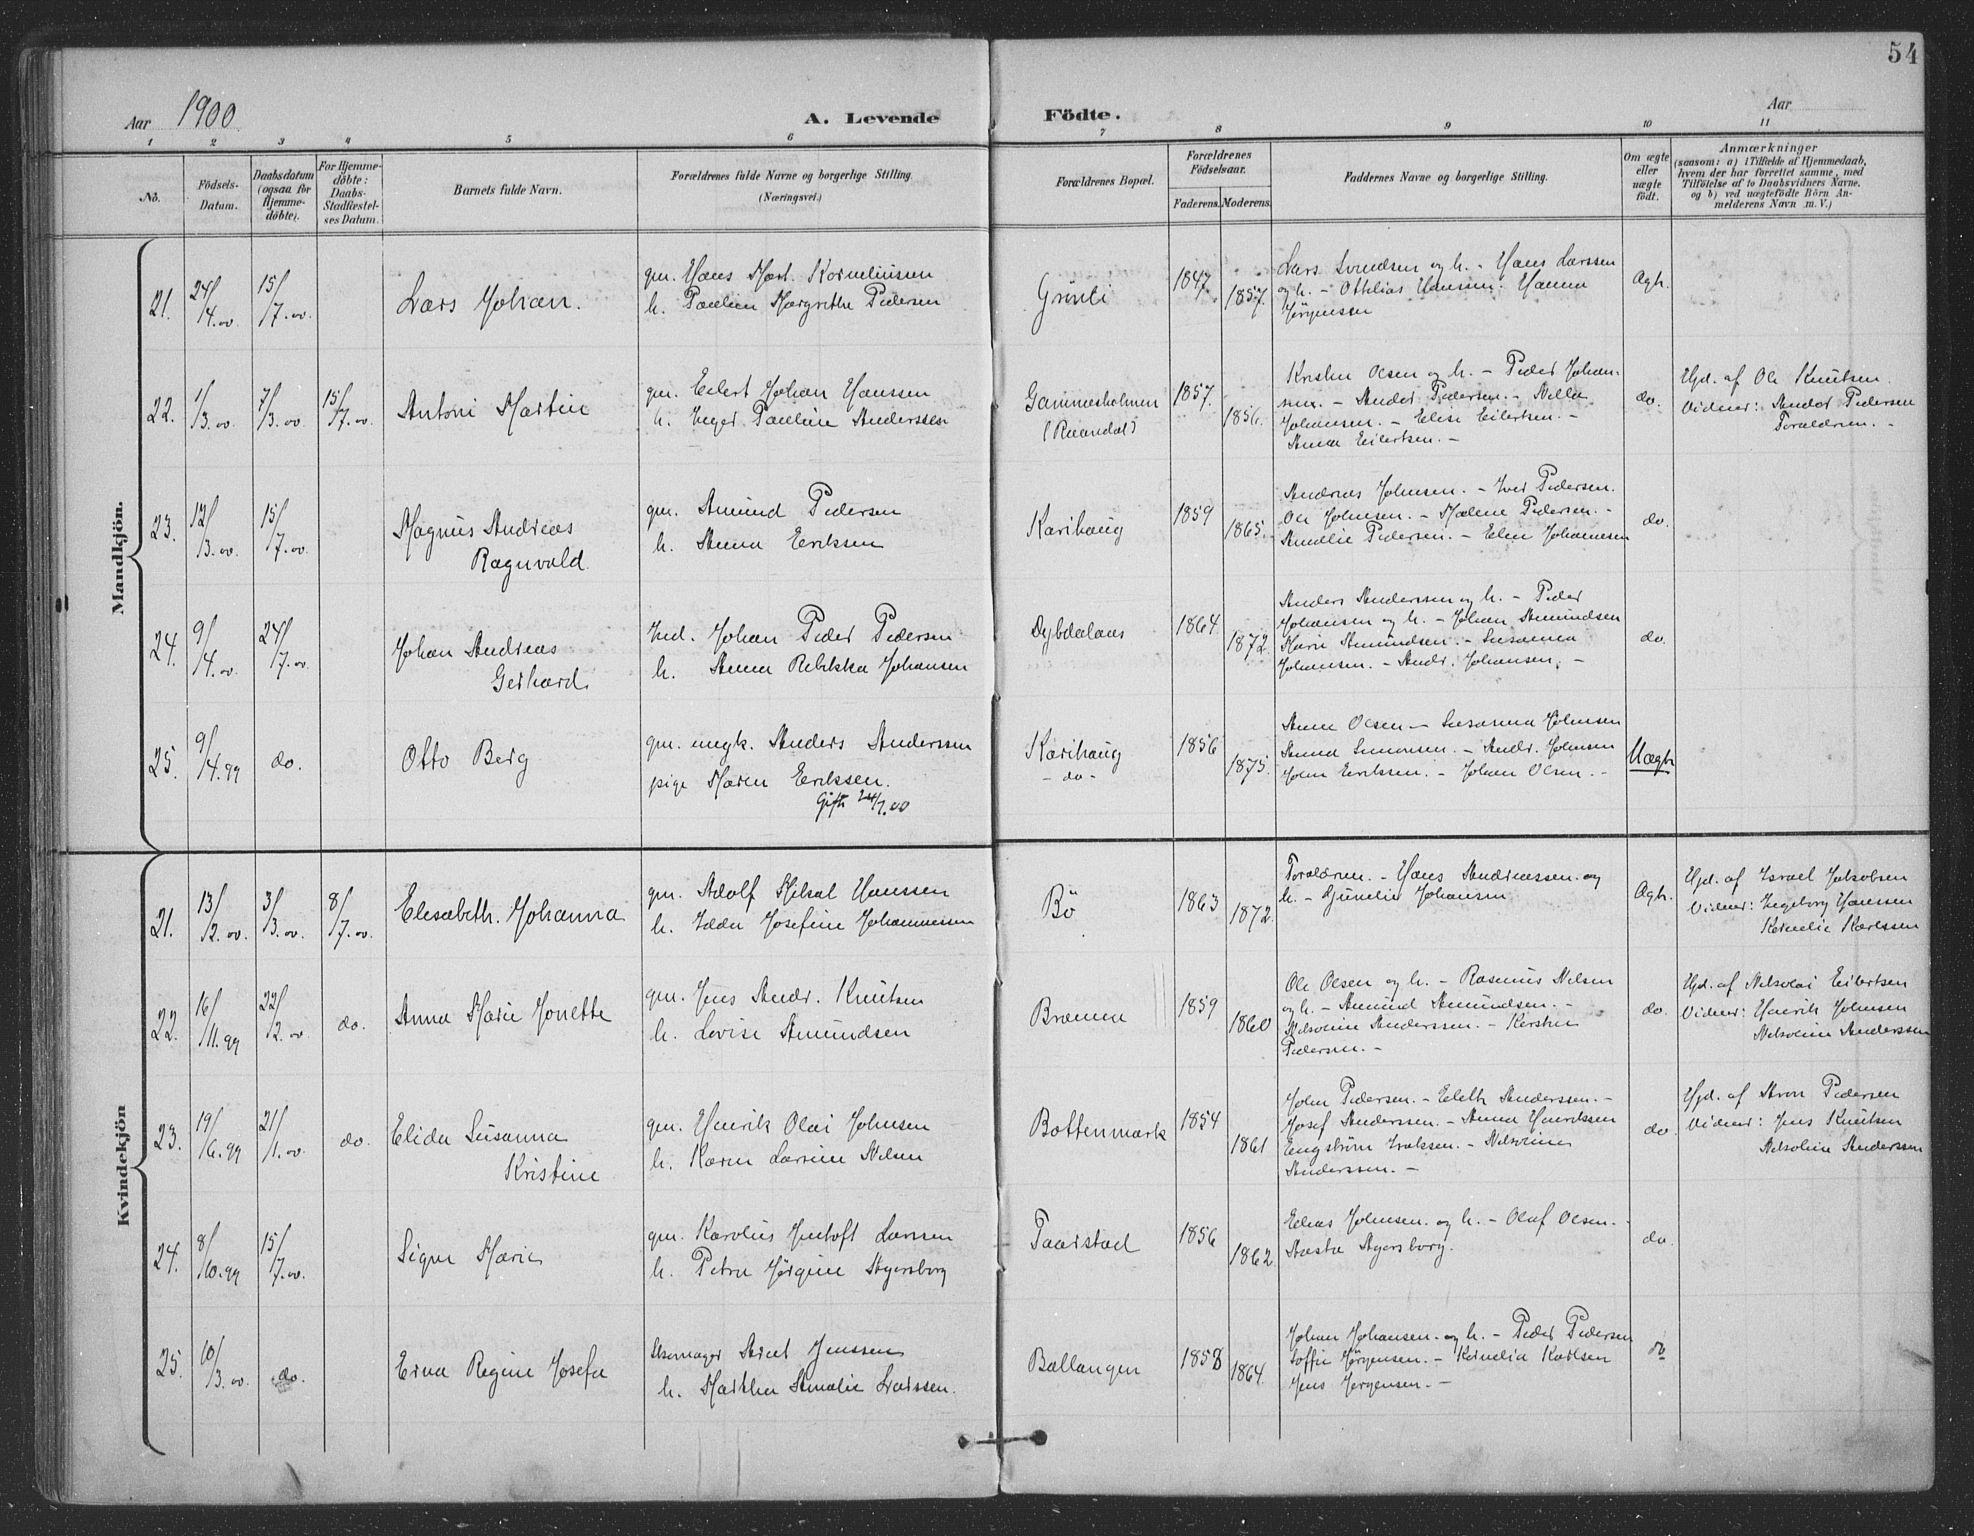 54
Aar 1900.
A. Levende Födte.
Aar
1 2 3 4 5 6 7 8 9 10 11
No.
Födsels-Datum.
Daabsdatum (ogsaa for Hjemme-döbte).
For Hjemme-döbte: Daabs-Stadfæstel-ses Datum.
Barnets fulde Navn.
Forældrenes fulde Navne og borgerlige Stilling. (Næringsvei.)
Forældrenes Bopæl.
Forældrenes Födselsaar.
Faderens. Moderens.
Faddernes Navne og borgerlige Stilling.
Om ægte eller uægte födt.
Anmærkninger
(saasom: a) i Tilfælde af Hjemmedaab,
hvem der har forrettet samme, med
Tilföielse af to Daabsvidners Navne,
og b) ved uægtefödte Börn An-
melderens Navn m. V.)
Mandkjön.
21. 24/4.00 15/7.00 Lars Johan.
gm. Hans Mart. Korneliussen
h. Pauline Margrethe Pedersen
Grönli 1847. 1857.
Lars Svendsen og h. - Hans Larssen
og h. - Othilias Hansen. Hanna
Jørgensen
Ægte.
22. 1/3.00 7/3.00 15/7.00 Antoni Martin
gm. Eilert Johan Hanssen
h. Inger Pauline Anderssen
Gammesholmen
(Raandal)
1857. 1856.
Kristen Olsen og h. - Peder Johan-
sen. - Andor Pedersen. - Nella
Johansen. - Elise Eilertsen. -
Anna Eilertsen. -
do.
Hjd. af Ole Knutsen.
Vidner: Andor Pedersen
Forældren. -
23. 12/3.00 15/7.00 Magnus Andreas
Ragnvald.
gm. Amund Pedersen
h. Anna Eriksen
Karihaug 1859 1865.
Andreas Johnsen. - Iver Pedersen.
Ole Johnsen. - Malene Pedersen. -
Amalie Pedersen. - Elen Johannesen
do.
24. 9/4.00 24/7.00 Johan Andreas
Gerhard.
Ind. Johan Peder Pedersen
h. Anna Rebekka Johansen
Dybdalaas 1864. 1872.
Anders Anderssen og h. - Peder
Johansen og h. - Johan Amundsen
Karie Amundsen. - Susanna
Johansen. - Andr. Johansen. -
do.
25. 9/4.99 do. Otto Berg
gm. ungk. Anders Anderssen
pige Maren Erikssen.
Gifte 24/7.00
Karihaug
- do -
1856 1875.
Anne Olsen - Susanna Johnsen
Anna Simonsen. - Andr. Johnsen
John Erikssen. - Johan Olsen. -
Uægte
Kvindekjön
21. 13/2.00 3/3.00 8/7.00 Elisabeth Johanna
gm. Adolf Mikal Hanssen
h. Idda Josefine Johannessen
Bö 1863 1872.
Forældren. - Hans Andreassen og
h. - Johansen
Ægte.
Hjd. af Israel Jakobsen
Vidner: Ingeborg Hanssen
Kornelie Karlssen
22. 16/11.99 22/2.00 do. Anna Marie Jonette
gm. Jens Andr. Knutsen
h. Lovise Amundsen
Bræmen 1859 1860
Ole Olsen og h. - Rasmus Nilsen
og h. - Amund Amundsen. -
Nikoline Anderssen. - Kirsten
Pedersen. -
do.
Hjd. af Nikolai Eilertsen
Vidner: Henrik Johnsen
Nikoline Anderssen
23. 19/6.99 21/1.00 do. Elida Susanna
Kristine
gm. Henrik Olai Johnsen
h. Karen Larsine Nilsen
Bottenmark 1854 1861
John Pedersen. - Eleth Anderssen. -
Josef Anderssen. - Anna Henrikssen
Engström Isaksen. - Nikoline
Anderssen. -
do.
Hjd. af Aron Pedersen
Vidner: Jens Knutsen
Nikoline Anderssen
24. 8/10.99 15/7.00 Signe Marie
gm. Karolius Jentoft Larssen
h. Petra Jørgine Agersborg
Taarstad 1856 1862
Elias Johnsen og h. - Olaf Olsen. -
Aasta Agersborg.
do.
25. 10/3.00 do. Erna Regine Josefa
Skomager Aret Jenssen
h. Martha Amalie Larssen.
Ballangen 1858 1864.
Johan Johansen og h. - Peder Pedersen
Soffie Jørgensen. - Kornelia Karlsen
Jens Jørgensen. -
do